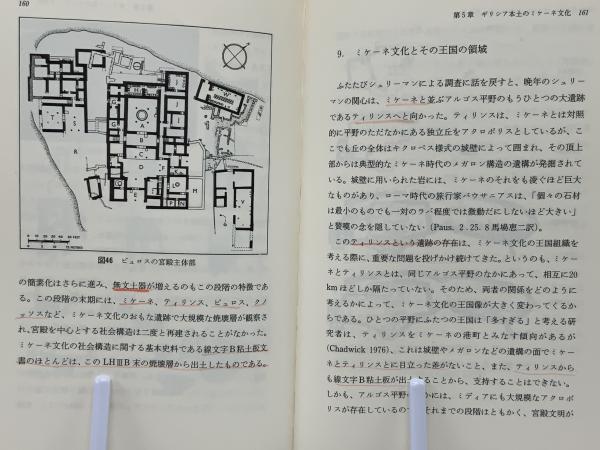 160
図46 ピュロスの宮殿主体部
の簡素化はさらに進み、無文土器が増えるのもこの段階の特徴であ
る。この段階の末期には、ミケーネ、ティリンス、ピュロス、クノ
ッソスなど、ミケーネ文化のおもな遺跡で大規模な焼壊層が観察さ
れ、宮殿を中心とする社会構造は二度と再建されることがなかった。
ミケーネ文化の社会構造に関する基本史料である線文字B粘土板文
書のほとんどは、このLHⅢB末の焼壊層から出土したものである。
第5章 ギリシア本土のミケーネ文化 161
9. ミケーネ文化とその王国の領域
ふたたびシュリーマンによる調査に話を戻すと、晩年のシュリー
マンの関心は、ミケーネと並ぶアルゴス平野のもうひとつの大遺跡
であるティリンスへと向かった。ティリンスは、ミケーネとは対照
的に平野のただなかにある独立丘をアクロポリスとしているが、こ
こでも丘の全体はキクロペス様式の城壁によって囲まれ、その頂上
部からは典型的なミケーネ時代のメガロン構造の遺構が発掘されて
いる。城壁に用いられた岩には、ミケーネのそれをも凌ぐほど巨大
なものがあり、ローマ時代の旅行家パウサニアスは、「個々の石材
は最小のものでも一対のラバ程度では微動だにしないほど大きい」
と賛嘆の念を隠していない (Paus. 2. 25. 8 馬場恵二訳)。
このティリンスという遺跡の存在は、ミケーネ文化の王国組織を
考える際に、重要な問題を投げかけ続けてきた。というのも、ミケー
ネとティリンスとは、同じアルゴス平野のなかにあって、相互に20
kmほどしか隔たっていない。そのため、両者の関係をどのように
考えるかによって、ミケーネ文化の王国像が大きく変わってくるか
らである。ひとつの平野にふたつの王国は「多すぎる」と考える研
究者は、ティリンスをミケーネの港町とみなす傾向があるが
(Chadwick 1976)、これは城壁やメガロンなどの遺構の面でミケー
ネとティリンスとに目立った差がないこと、また、ティリンスから
も線文字B粘土板が出土することから、支持することはできない。
しかも、アルゴス平野のなかには、ミディアにも大規模なアクロポ
リスが存在しているので、それまでの段階はともかく、宮殿文明が